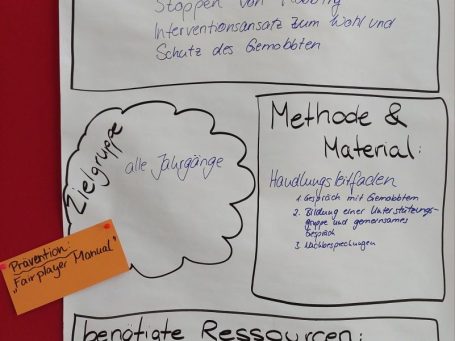 Stoppen von Mobbing
Interventionsansatz zum Wohl und
Schutz des Gemobbten
Zielgruppe
alle Jahrgänge
Prävention:
„Fairplayer Manual"
Methode &
Material:
Handlungsleitfaden
1. Gespräch mit Gemobbtem
2. Bildung einer Unterstützungs-
gruppe und gemeinsames
Gespräch
3. Nachbesprechungen
benötigte Ressourcen: